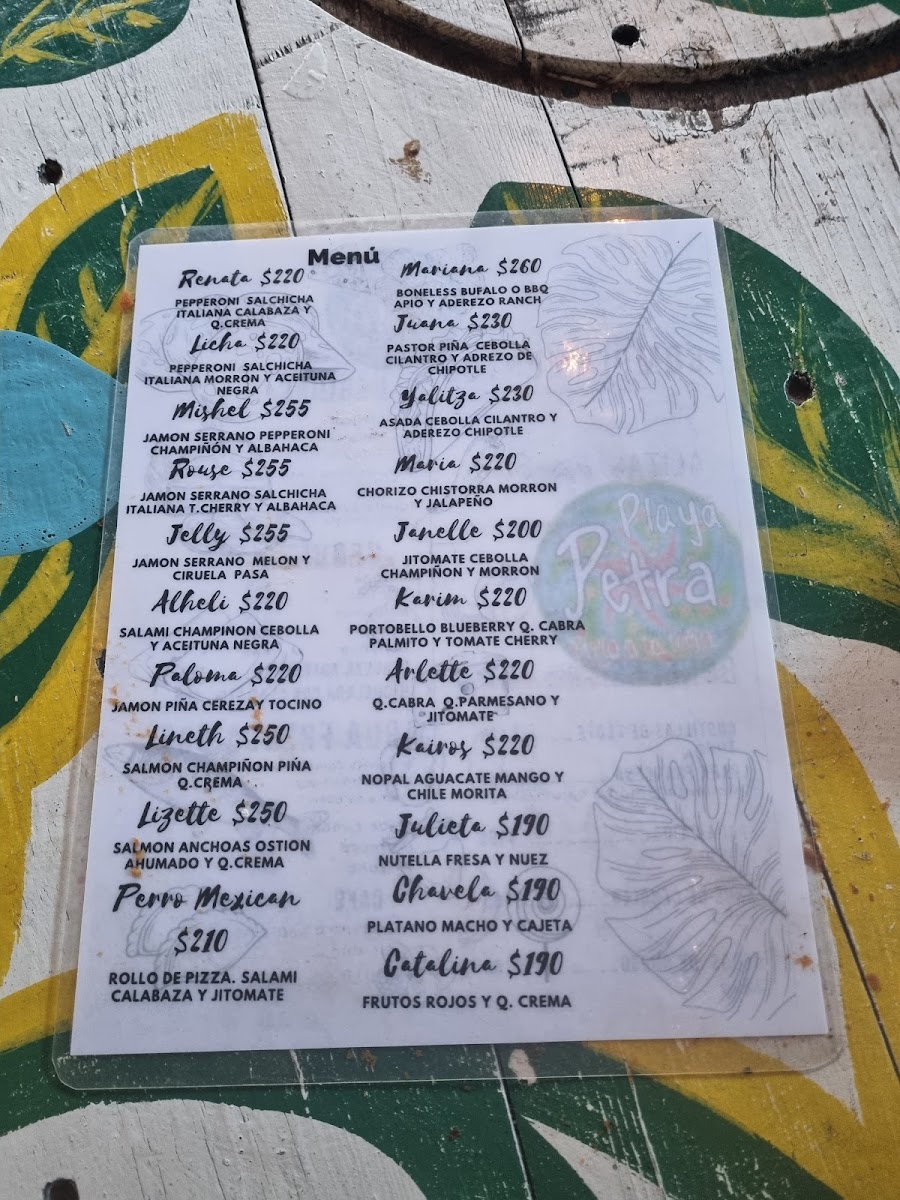 Menú
Renata $220
PEPPERONI SALCHICHA
ITALIANA CALABAZA Y
Q.CREMA
Licha $220
PEPPERONI SALCHICHA
ITALIANA MORRON Y ACEITUNA
NEGRA
Mishel $255
JAMON SERRANO PEPPERONI
CHAMPIÑÓN Y ALBAHACA
Rouse $255
JAMON SERRANO SALCHICHA
ITALIANA T.CHERRY Y ALBAHACA
Jelly $255
JAMON SERRANO MELON Y
CIRUELA PASA
Alheli $220
SALAMI CHAMPINON CEBOLLA
Y ACEITUNA NEGRA
Paloma $220
JAMON PIÑA CEREZAY TOCINO
Lineth $250
SALMON CHAMPIÑON PIÑA
Q.CREMA
Lizette $250
SALMON ANCHOAS OSTION
AHUMADO Y Q.CREMA
Perro Mexican
$210
ROLLO DE PIZZA. SALAMI
CALABAZA Y JITOMATE
Mariana $260
BONELESS BUFALO O BBQ
APIO Y ADEREZO RANCH
Juana $230
PASTOR PIÑA CEBOLLA
CILANTRO Y ADREZO DE
CHIPOTLE
Yalitza $230
ASADA CEBOLLA CILANTRO Y
ADEREZO CHIPOTLE
Maria $220
CHORIZO CHISTORRA MORRON
Y JALAPEÑO
Janelle $200
JITOMATE CEBOLLA
CHAMPIÑON Y MORRON
Karim $220
PORTOBELLO BLUEBERRY Q. CABRA
PALMITO Y TOMATE CHERRY
Arlette $220
Q.CABRA Q.PARMESANO Y
JITOMATE
Kairos $220
NOPAL AGUACATE MANGO Y
CHILE MORITA
Julieta $190
NUTELLA FRESA Y NUEZ
Chavela $190
PLATANO MACHO Y CAJETA
Catalina $190
FRUTOS ROJOS Y Q. CREMA
Playa
Petra